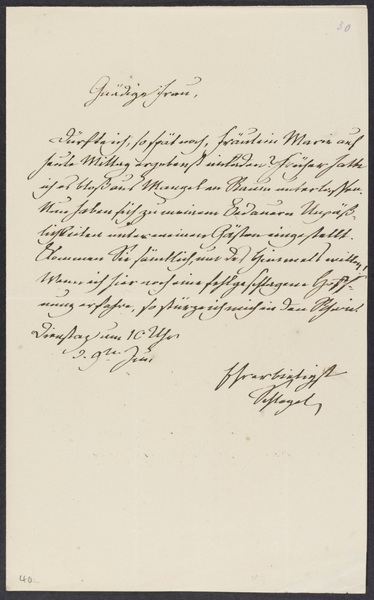 30
Gnädige Frau,
Dürfte ich, so spät noch, Fräulein Marie auf
heute Mittag ergebenst einladen? Früher hatte
ich es bloß aus Mangel an Raum unterlassen.
Nun haben sich zu meinem Bedauern Unpäß-
lichkeiten unter meinen Gästen eingestellt.
Kommen Sie sämtlich, um des Himmels willen!
Wenn ich hier noch eine fehlgeschlagene Hoff-
nung erfahre, so stürze ich mich in den Rhein!
Dienstag um 10 Uhr
d. 9ten Jun.
Ehrerbietigst
Schlegel
40